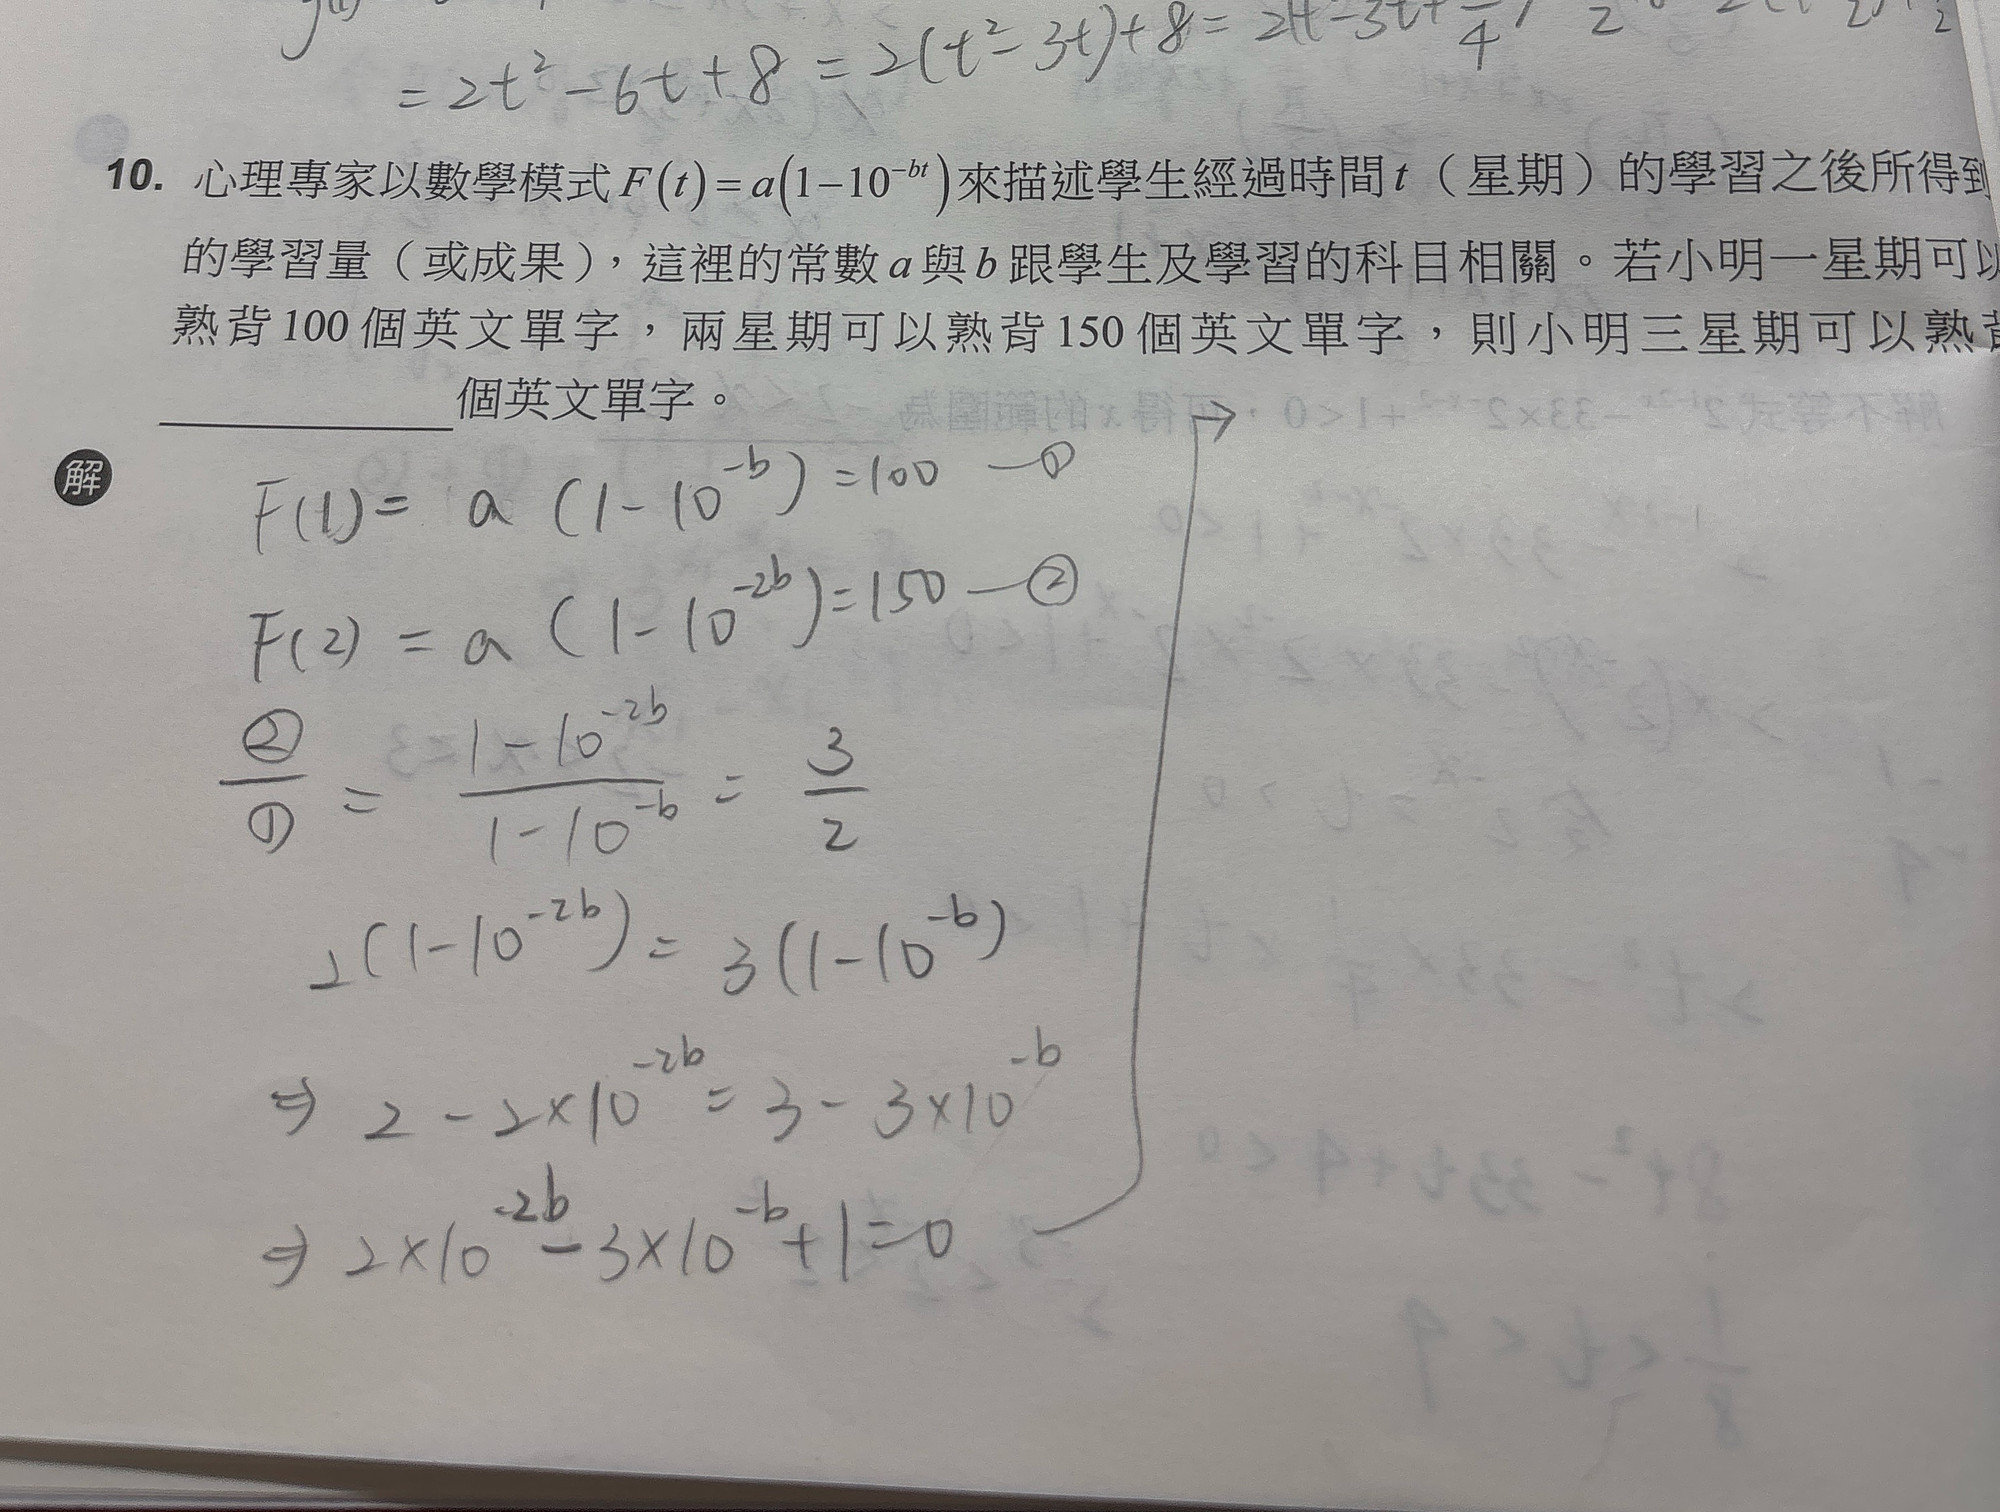 = 2t² - 6t + 8 = 2(t² - 3t) + 8 =
10. 心理專家以數學模式 F(t) = a(1-10^{-bt}) 來描述學生經過時間 t （星期）的學習之後所得到
的學習量（或成果），這裡的常數 a 與 b 跟學生及學習的科目相關。若小明一星期可以
熟背 100 個英文單字，兩星期可以熟背 150 個英文單字，則小明三星期可以熟背
________ 個英文單字。
解
F(1) = a (1-10^{-b}) = 100 —①
F(2) = a (1-10^{-2b}) = 150 —②
②/① = (1-10^{-2b})/(1-10^{-b}) = 3/2
2(1-10^{-2b}) = 3(1-10^{-b})
⇒ 2 - 2×10^{-2b} = 3 - 3×10^{-b}
⇒ 2×10^{-2b} - 3×10^{-b} + 1 = 0